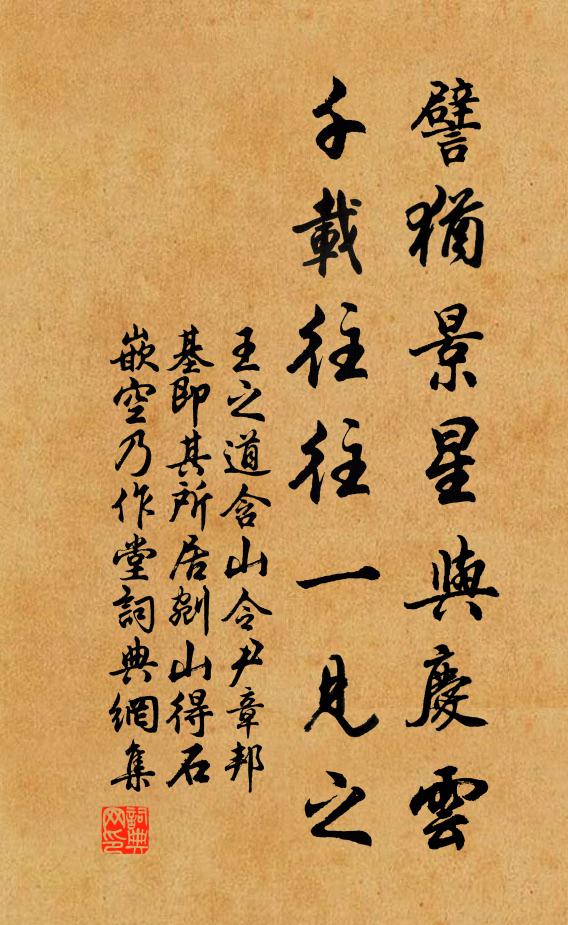 譬猶景星與慶雲
千載往往一見之
王之道含山令尹章邦
基即其所居剜山得石
嵌空乃作堂詞典網集
詞典
网印